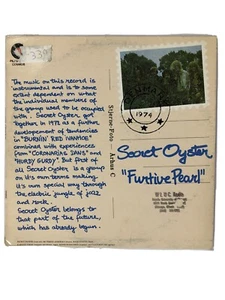 The music on this record is
instrumental and is to some
extent dependent on what
the individual members of
the group used to be occupied
with. Secret Oyster got
together in 1972 as a further
development of tendencies
in "BURNIN' RED IVANHOE"
combined with experiences
from "CORONARIAS DANS" and
"HURDY GURDY". But first of
all Secret Oyster is a group
on it's own terms making
it's own special way through
the electric jungle of jazz
and rock.
Secret Oyster belongs to
that part of the future,
which has already begun.
1974
Secret Oyster
"Furtive Pearl"